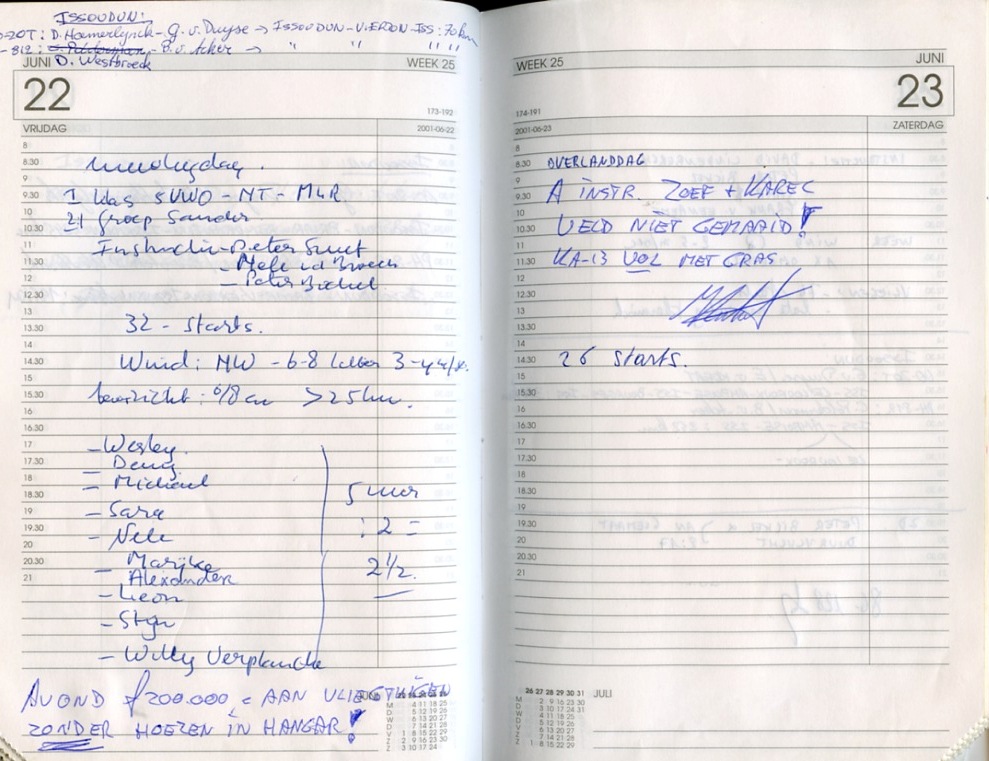 ISSOUDUN:
-20T: D. Haemerlynck - G. v. Duyse → ISSOUDUN - VIERZON - ISS: 70 km
- 812: - B. v. Acker → " " " "
D. Westbroeck
JUNI WEEK 25
22
173-192
VRIJDAG 2001-06-22
8
8.30
9
9.30 1 klas 5VWO - MT - MLR
10 2) groep Sander
10.30
11 Instructie - Peter Smet
11.30
12 - Peter
12.30
13
13.30 32 - Starts.
14
14.30 Wind: NW - 6-8 3-4
15
15.30 6/8 cu > 25 km.
16
16.30
17 - Wesley
17.30 - Deny
18 - Michael
18.30 5 uur
19 - Sara
19.30 - Nele : 2 =
20
20.30 - Marijke 2 1/2
21 Alexander
- Leon
- Stijn
- Willy Verplancke
AVOND ƒ 200.000,= AAN VLIEGTUIGEN
ZONDER HOEZEN IN HANGAR!
WEEK 25 JUNI
23
174-191
2001-06-23 ZATERDAG
8
8.30 OVERLANDDAG
9
9.30 A INSTR. ZOEF + KAREL
10
10.30 VELD NIET GEMAAID!
11
11.30 KA-13 VOL MET GRAS
12
12.30
13
13.30
14
14.30 26 starts.
15
15.30
16
16.30
17
17.30
18
18.30
19
19.30
20
20.30
21
26 27 28 29 30 31 JULI
M 2 9 16 23 30
D 3 10 17 24 31
W 4 11 18 25
D 5 12 19 26
V 6 13 20 27
Z 7 14 21 28
Z 1 8 15 22 29